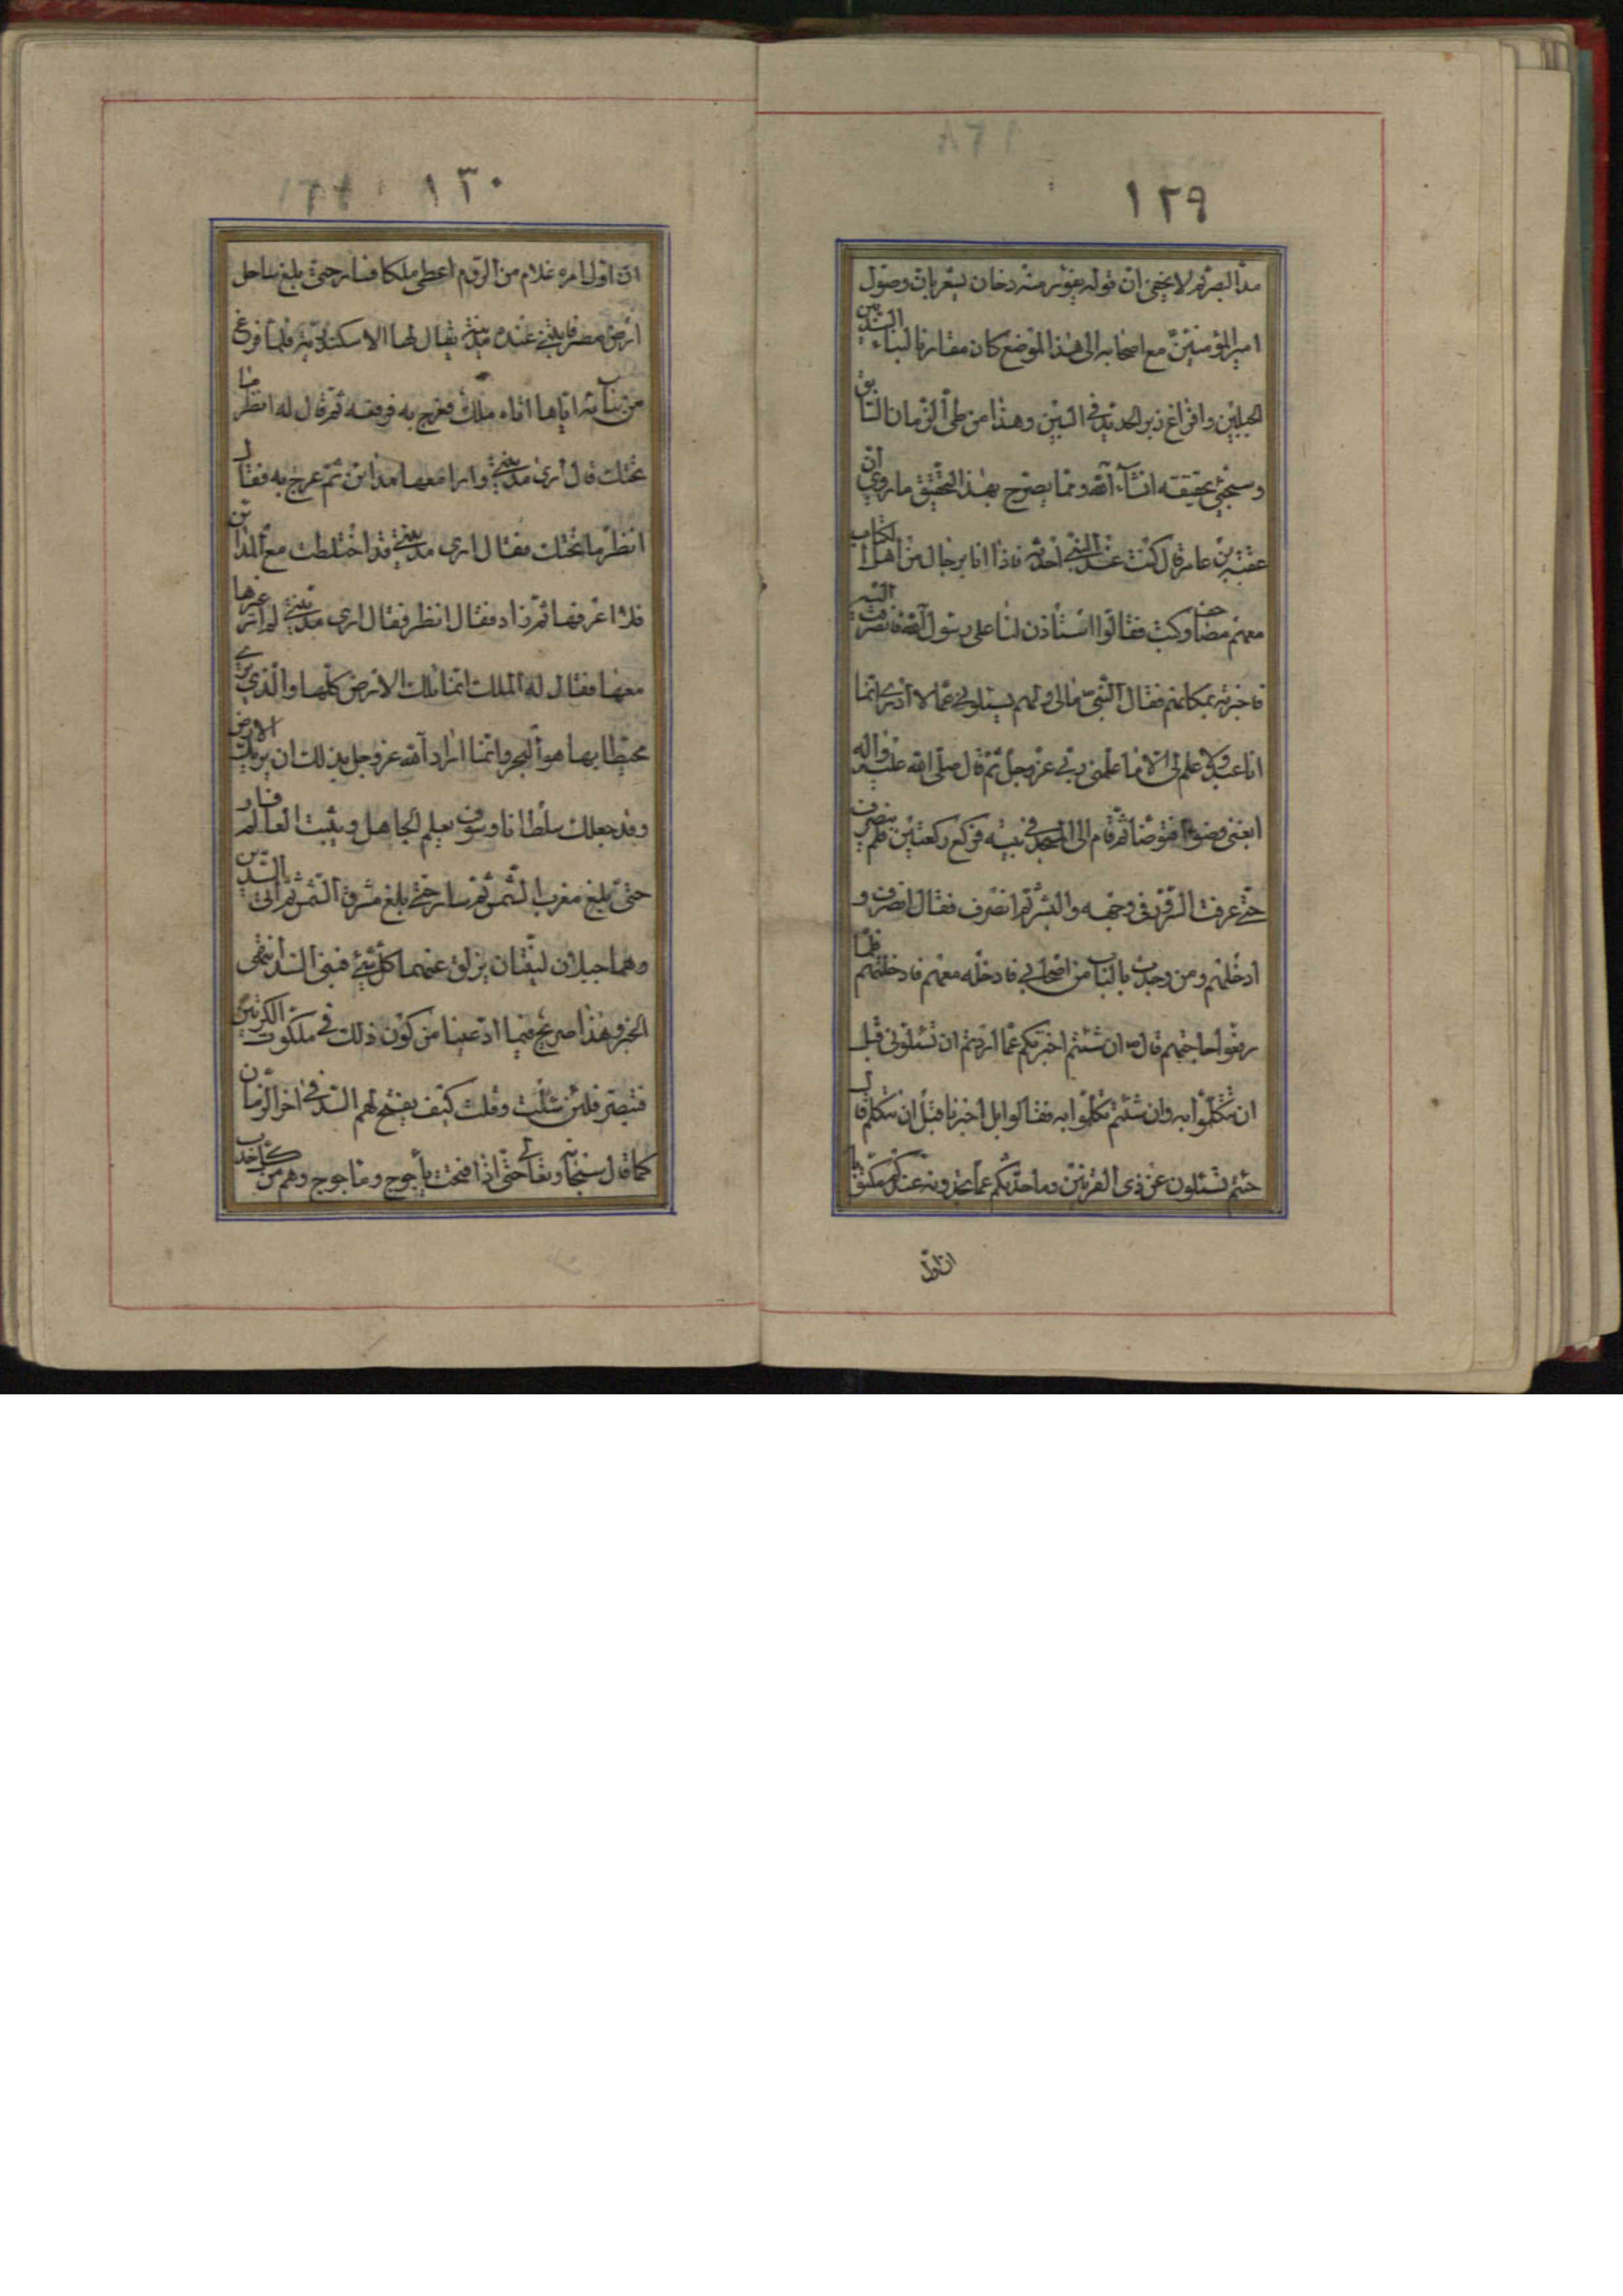 ١٢٩
مد البصر ثم لا يخفى ان قوله يفور منه دخان يشعر بان وصول
امير المؤمنين مع اصحابه الى هذا الموضع كان مقارنا لبناء السدين
الجبلين وافراغ زبر الحديد في البين وهذا من طى الزمان السابق
وسيجئ تحقيقه انشاء الله ومما يصرح بهذا التحقيق ما روى ان
عقبة بن عامر قال كنت عند النبي اخدمه فاذا انا برجال من اهل الكتاب
معهم مصاحف وكتب فقالوا استأذن لنا على رسول الله فانصرفت اليه
فاخبرته بمكانهم فقال النبي مالى ولهم يسئلونى عما لا ادرى انما
انا عبد ولا علم لى الا ما علمنى ربى عز وجل ثم قال صلى الله عليه واله
ابغنى وضوء فتوضا ثم قام الى المسجد فى بيته فركع ركعتين فلم ينصرف
حتى عرفت السرور فى وجهه والبشر ثم انصرف فقال انصرف و
ادخلهم ومن وجدت بالباب من اصحابى فادخله معهم فادخلتهم فلما
رفعوا حاجتهم قال ان شئتم اخبرتكم عما اردتم ان تسئلونى قبل
ان تتكلموا به وان شئتم تكلموا به فقالوا بل اخبرنا قبل ان نتكلم قال
جئتم تسئلون عن ذى القرنين وما حدثكم عما تجدونه عندكم مكتوبا
ان اول
١٣٠
ان اول امره غلام من الروم اعطى ملكا فسار حتى بلغ ساحل
ارض مصر فابتنى عنده مدينة يقال لها الاسكندرية فلما فرغ
من بنايه اياها اتاه ملك فعرج به فرفعه ثم قال له انظر ما
تحتك قال ارى مدينتى وارا معها مداين ثم عرج به فقال
انظر ما تحتك فقال ارى مدينتى قد اختلطت مع المداين
فلا اعرفها ثم زاد فقال انظر فقال ارى مدينتى لم ار غيرها
معها فقال له الملك انما تلك الارض كلها والذى ترى
محيطا بها هو البحر وانما اراد الله عز وجل بذلك ان يريك الارض
وقد جعلك سلطانا وسوف يعلم الجاهل ويثبت العالم فسار
حتى بلغ مغرب الشمس ثم سار حتى بلغ مشرق الشمس ثم اتى السدين
وهما جبلان لينان يزلق عنهما كل شئ فبنى السد انتهى
الخبر وهذا صريح فيما ادعينا من كون ذلك فى ملكوت الكونين
فتبصر فلئن سئلت وقلت كيف يفتح لهم السد فى اخر الزمان
كما قال سبحانه وتعالى حتى اذا فتحت يأجوج وماجوج وهم من كل حدب